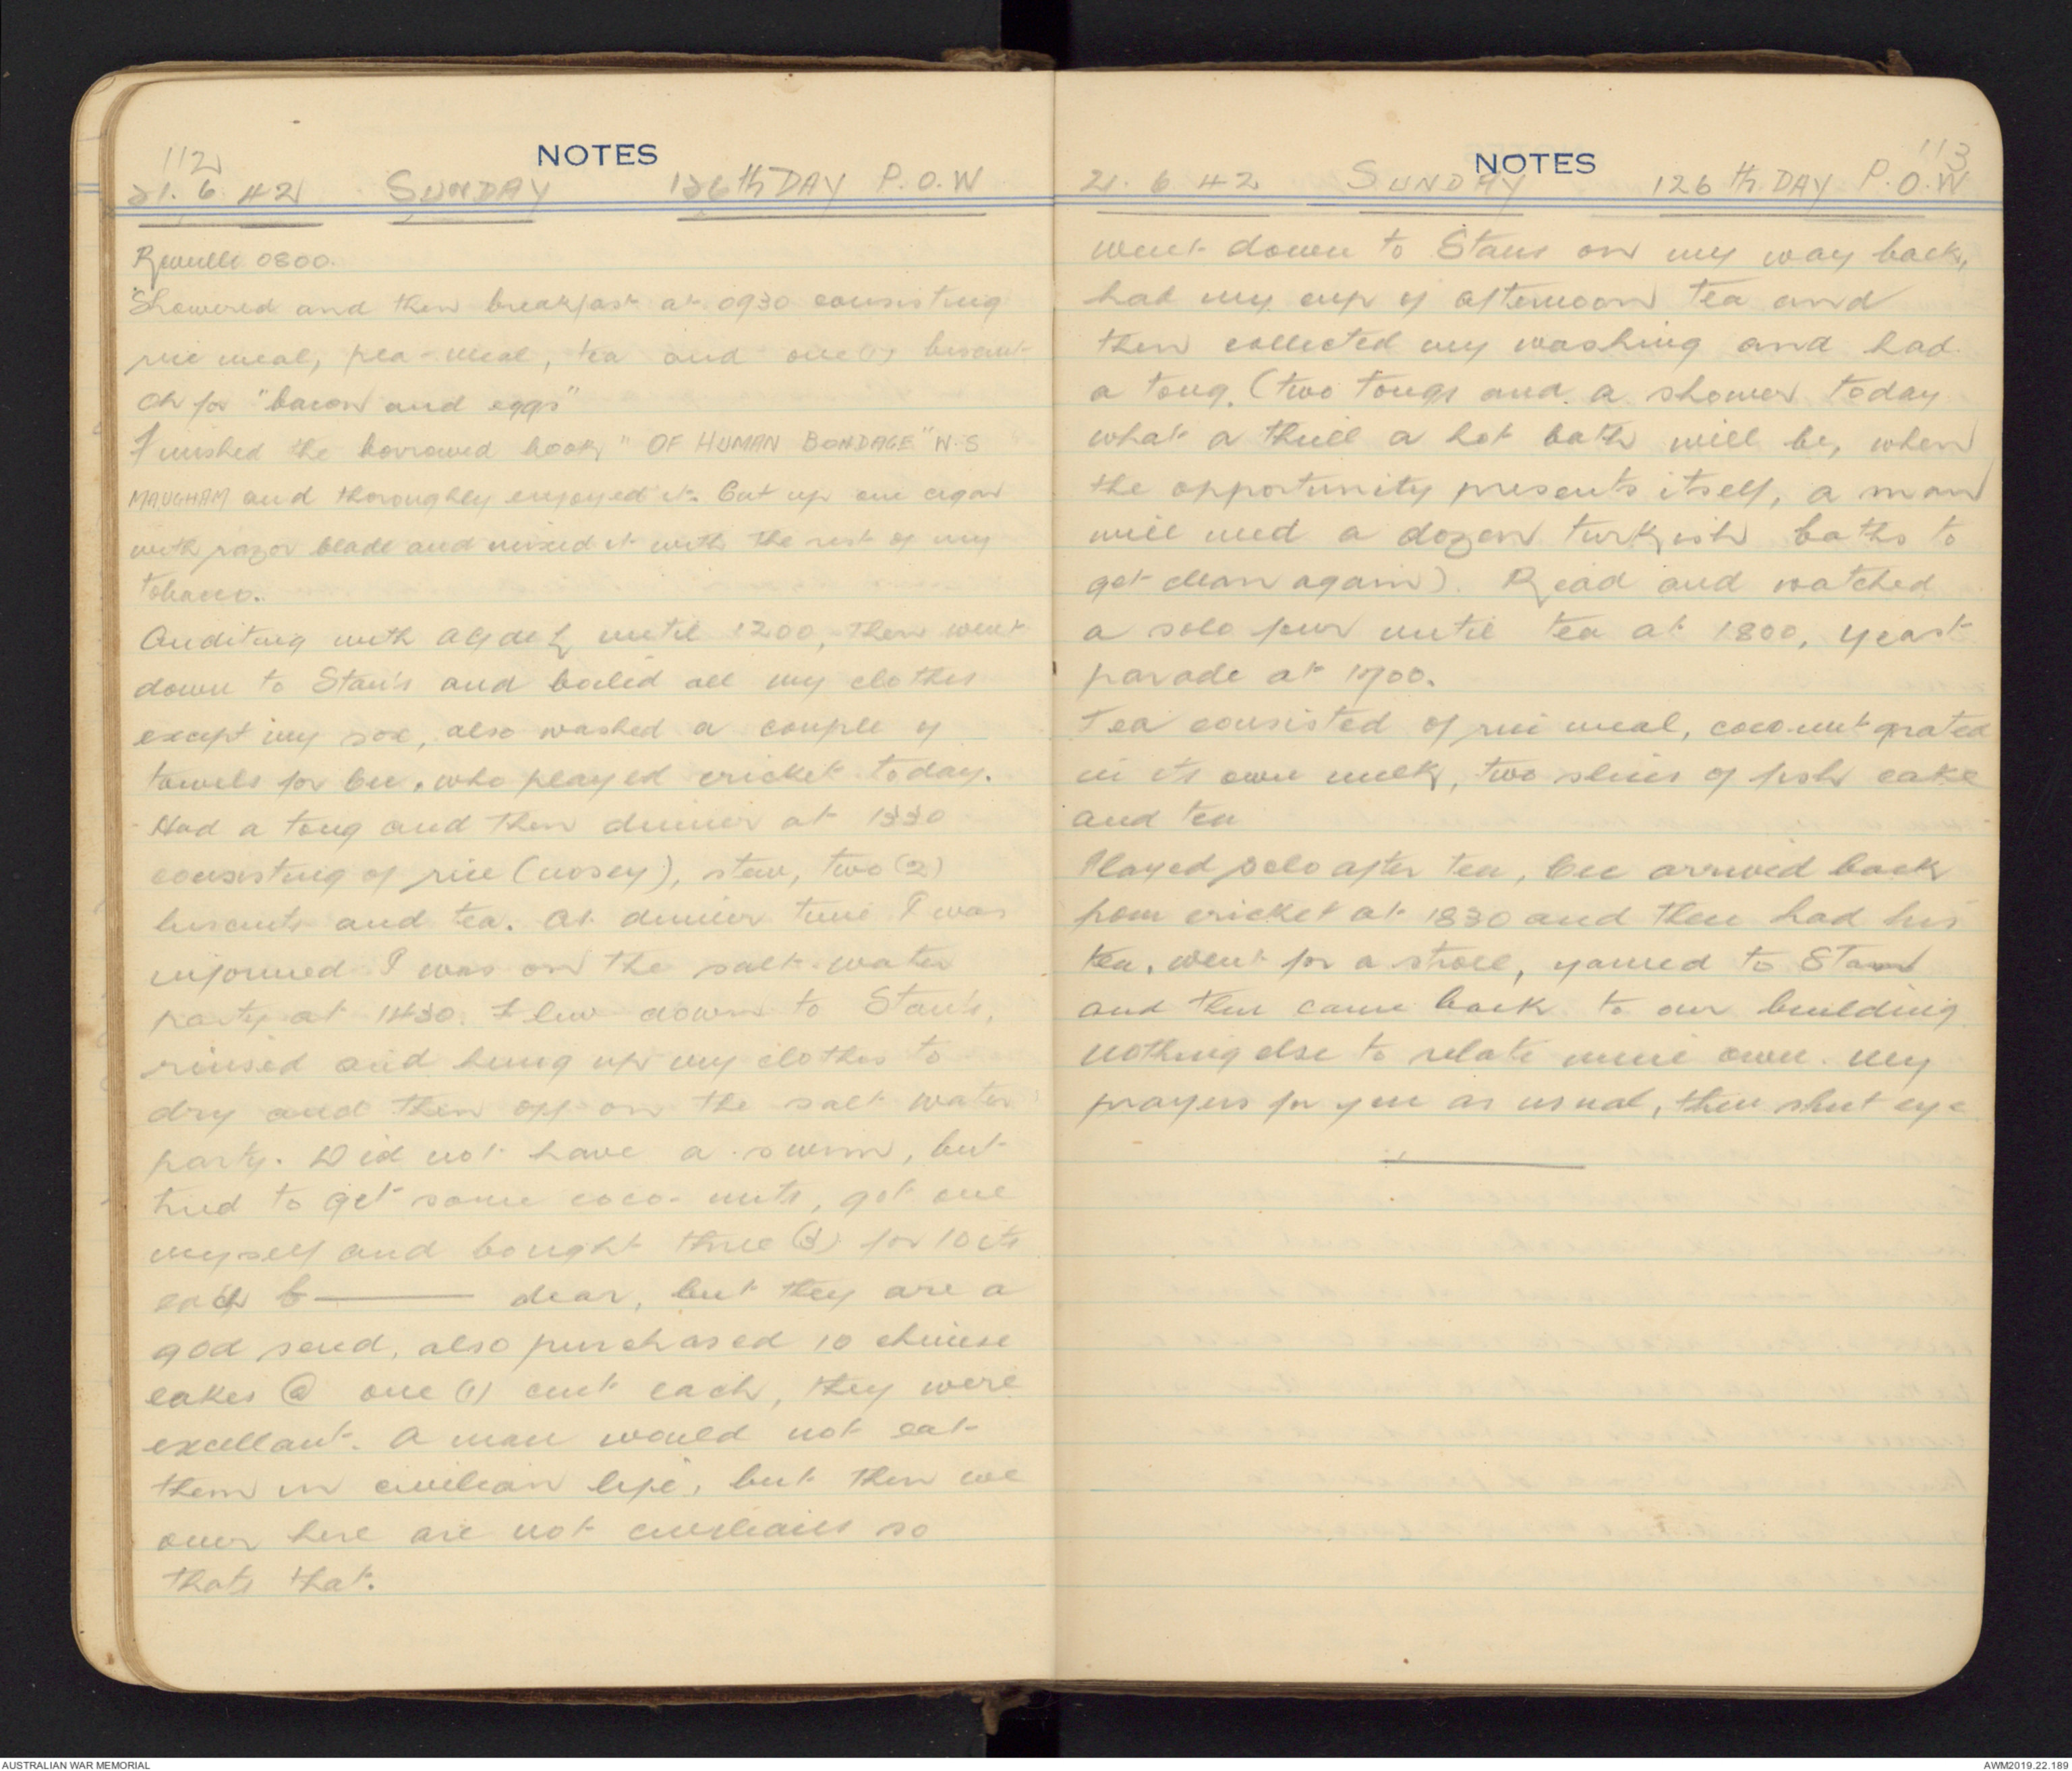 112
NOTES
21. 6. 42 SUNDAY 126th DAY P.O.W
Reveille 0800.
Showered and then breakfast at 0930 consisting
rice meal, pea-meal, tea and one (1) biscuit
Oh for "bacon and eggs"
Finished the borrowed book, "OF HUMAN BONDAGE" W.S
MAUGHAM and thoroughly enjoyed it. Cut up one cigar
with razor blade and mixed it with the rest of my
tobacco.
Auditing with until 1200, then went
down to Stan's and boiled all my clothes
except my sox, also washed a couple of
towels for Cec, who played cricket today.
Had a tong and then dinner at 1330
consisting of rice (nosey), stew, two (2)
biscuits and tea. At dinner time I was
informed I was on the salt-water
party at 1430. Flew down to Stan's,
rinsed and hung up my clothes to
dry and then off on the salt water
party. Did not have a swim, but
tried to get some coco-nuts, got one
myself and bought three (3) for 10 cts
each b——— dear, but they are a
god send, also purchased 10 chinese
cakes @ one (1) cent each, they were
excellant. A man would not eat
them in civilian life, but then we
over here are not civilians so
thats that.
113
NOTES
21. 6 42 SUNDAY 126 th DAY P.O.W
went down to Stans on my way back,
had my cup of afternoon tea and
then collected my washing and had
a tong. (two tongs and a shower today
what a thrill a hot bath will be, when
the opportunity presents itself, a man
will need a dozen turkish baths to
get clean again). Read and watched
a solo four until tea at 1800, yeast
parade at 1700.
Tea consisted of rice meal, coco-nut grated
in its own milk, two slices of fish cake
and tea
Played solo after tea, Cec arrived back
from cricket at 1830 and then had his
tea, went for a stroll, yarned to Stan
and then came back to our building
nothing else to relate mine own. my
prayers for you as usual, then shut eye
AUSTRALIAN WAR MEMORIAL
AWM2019.22.189